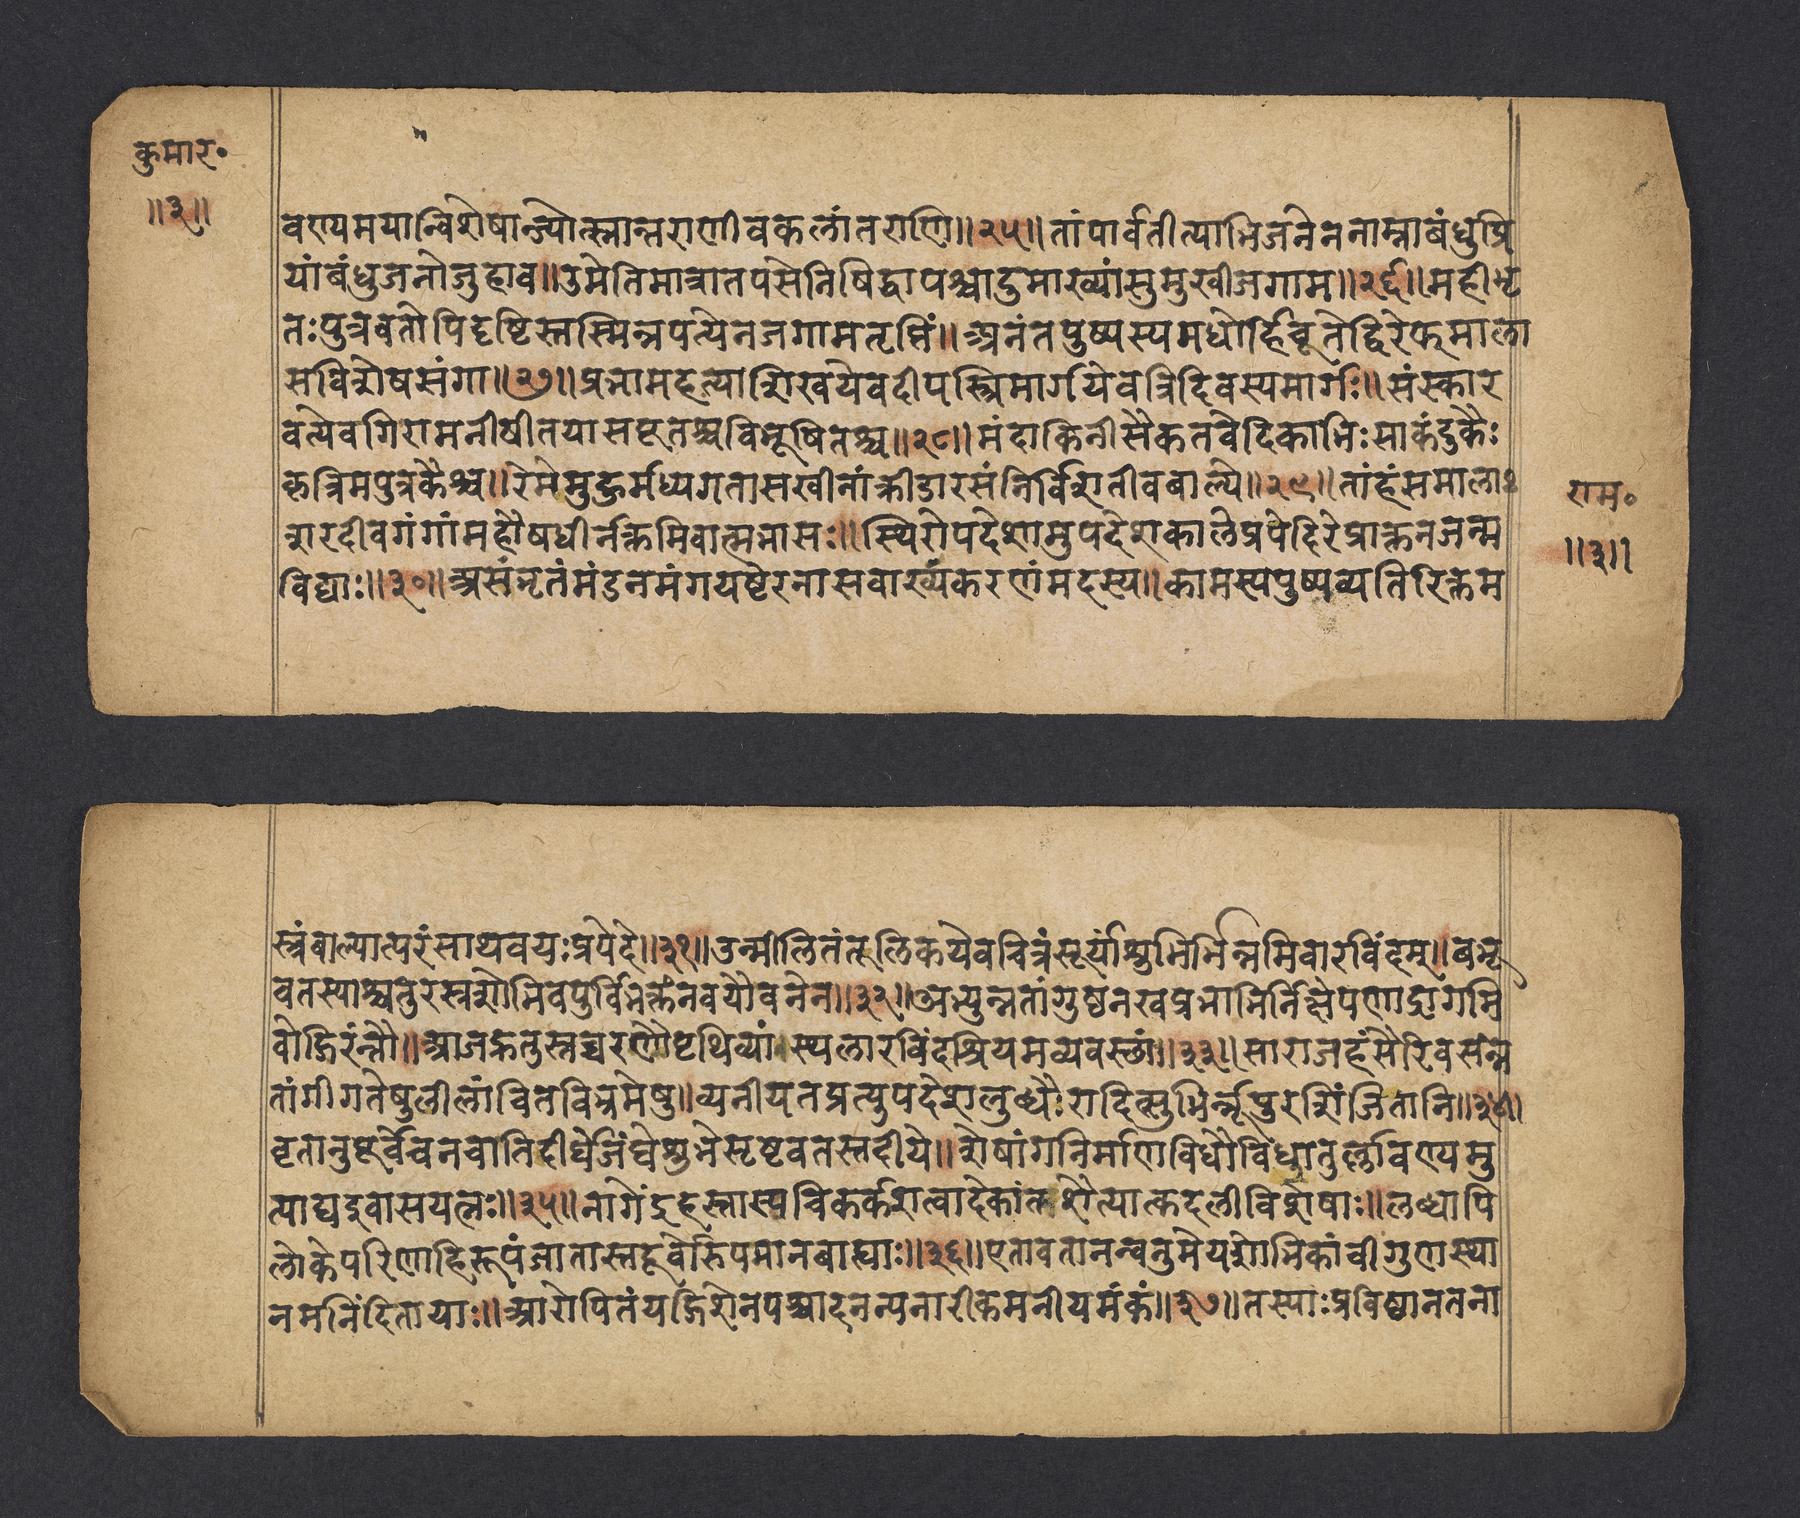 कुमार॰
॥३॥
वण्यमयान्विशेषान्ज्योत्स्नान्तराणीवकलांतराणि॥२५॥तांपार्वतीत्याभिजनेननाम्नाबंधुप्रि
यांबंधुजनोजुहाव॥उमेतिमात्रातपसेनिषिद्धापश्चादुमाख्यांसुमुखीजगाम॥२६॥महीभृ
तःपुत्रवतोपिदृष्टिस्तस्मिन्नपत्येनजगामतृप्तिं॥अनंतपुष्पस्यमधोर्हिचूतेद्विरेफमाला
सविशेषसंगा॥२७॥प्रभामहत्याशिखयेवदीपस्त्रिमार्गयेवत्रिदिवस्यमार्गः॥संस्कार
वत्येवगिरामनीषीतयासपूतश्चविभूषितश्च॥२८॥मंदाकिनीसैकतवेदिकाभिःसाकंदुकैः
कृत्रिमपुत्रकैश्च॥रेमेमुहुर्मध्यगतासखीनांक्रीडारसंनिर्विशतीवबाल्ये॥२९॥तांहंसमालाः
शरदीवगंगांमहौषधीर्नक्तमिवात्मभासः॥स्थिरोपदेशामुपदेशकालेप्रपेदिरेप्राक्तनजन्म
विद्याः॥३०॥असंभृतंमंडनमंगयष्टेरनासवाख्यंकरणंमदस्य॥कामस्यपुष्पव्यतिरिक्तम
राम॰
॥३॥
स्त्रंबाल्यात्परंसाथवयःप्रपेदे॥३१॥उन्मीलितंतूलिकयेवचित्रंसूर्यांशुभिर्भिन्नमिवारविंदम्॥बभू
वतस्याश्चतुरस्रशोभिवपुर्विभक्तंनवयौवनेन॥३२॥अभ्युन्नतांगुष्ठनखप्रभाभिर्निक्षेपणाद्रागमि
वोद्गिरंन्तौ॥आजह्रतुस्तच्चरणौपृथिव्यां।स्थलारविंदश्रियमव्यवस्थां॥३३॥साराजहंसैरिवसंन्न
तांगीगतेषुलीलांचितविभ्रमेषु॥व्यनीयतप्रत्युपदेशलुब्धैरादित्सुभिर्न्नूपुरशिंजितानि॥३४॥
वृत्तानुपूर्वेचनचातिदीर्घेजंघेशुभेसृष्टवतस्तदीये॥शेषांगनिर्माणविधौविधातुर्लावण्यमु
त्पाद्यइवासयत्नः॥३५॥नागेंद्रहस्तास्त्वचिकर्कशत्वादेकांतशैत्यात्कदलीविशेषाः॥लब्ध्वापि
लोकेपरिणाहिरूपंजातास्तदूर्वोरुपमानबाह्याः॥३६॥एतावतानन्वनुमेयशोभिकांचीगुणस्था
नमनिंदितायाः॥आरोपितंयद्गिरिशेनपश्चादनन्यनारीकमनीयमंकं॥३७॥तस्याःप्रविष्ठानतना